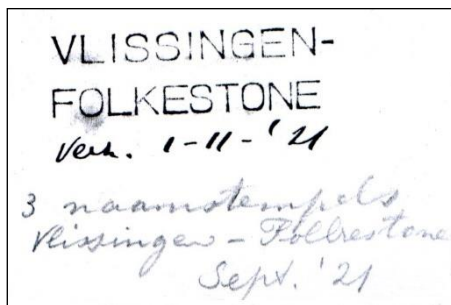 VLISSINGEN-
FOLKESTONE
Verk. 1-11-'21
3 naamstempels
Vlissingen - Folkestone
Sept. '21